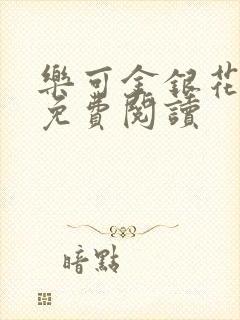 樂可金銀花
免費閱讀
暗點